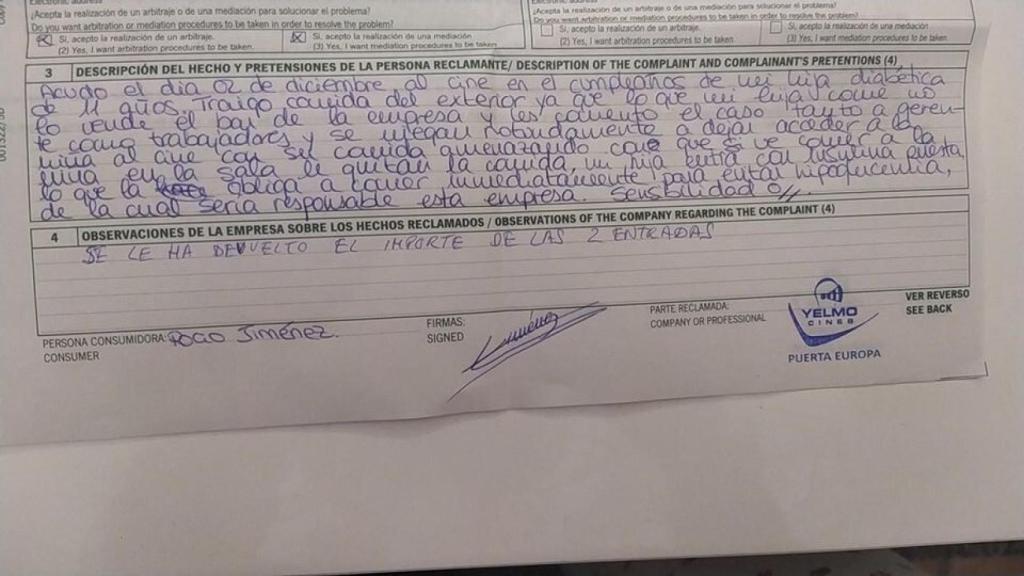 ¿Acepta la realización de un arbitraje o de una mediación para solucionar el problema?
Do you want arbitration or mediation procedures to be taken in order to resolve the problem?
Sí, acepto la realización de un arbitraje.
(2) Yes, I want arbitration procedures to be taken.
Sí, acepto la realización de una mediación
(3) Yes, I want mediation procedures to be taken
¿Acepta la realización de un arbitraje o de una mediación para solucionar el problema?
Do you want arbitration or mediation procedures to be taken in order to resolve the problem?
Sí, acepto la realización de un arbitraje.
(2) Yes, I want arbitration procedures to be taken.
Sí, acepto la realización de una mediación
(3) Yes, I want mediation procedures to be taken.
3 DESCRIPCIÓN DEL HECHO Y PRETENSIONES DE LA PERSONA RECLAMANTE/ DESCRIPTION OF THE COMPLAINT AND COMPLAINANT'S PRETENTIONS (4)
Acudo el día 02 de diciembre al cine en el cumpleaños de mi hija diabética
de 11 años. Traigo comida del exterior ya que lo que mi hija come no
lo vende el bar de la empresa y les comento el caso tanto a geren-
te como trabajadores y se niegan rotundamente a dejar acceder a la
niña al cine con su comida amenazando con que si ve comer a la
niña en la sala le quitan la comida, mi hija entra con insulina puesta
lo que la obliga a comer inmediatamente para evitar hipoglucemia,
de la cual sería responsable esta empresa. Sensibilidad 0
4 OBSERVACIONES DE LA EMPRESA SOBRE LOS HECHOS RECLAMADOS / OBSERVATIONS OF THE COMPANY REGARDING THE COMPLAINT (4)
SE LE HA DEVUELTO EL IMPORTE DE LAS 2 ENTRADAS
PERSONA CONSUMIDORA: Rocio Jiménez.
CONSUMER
FIRMAS:
SIGNED
Jiménez
PARTE RECLAMADA:
COMPANY OR PROFESSIONAL
YELMO
CINES
PUERTA EUROPA
VER REVERSO
SEE BACK